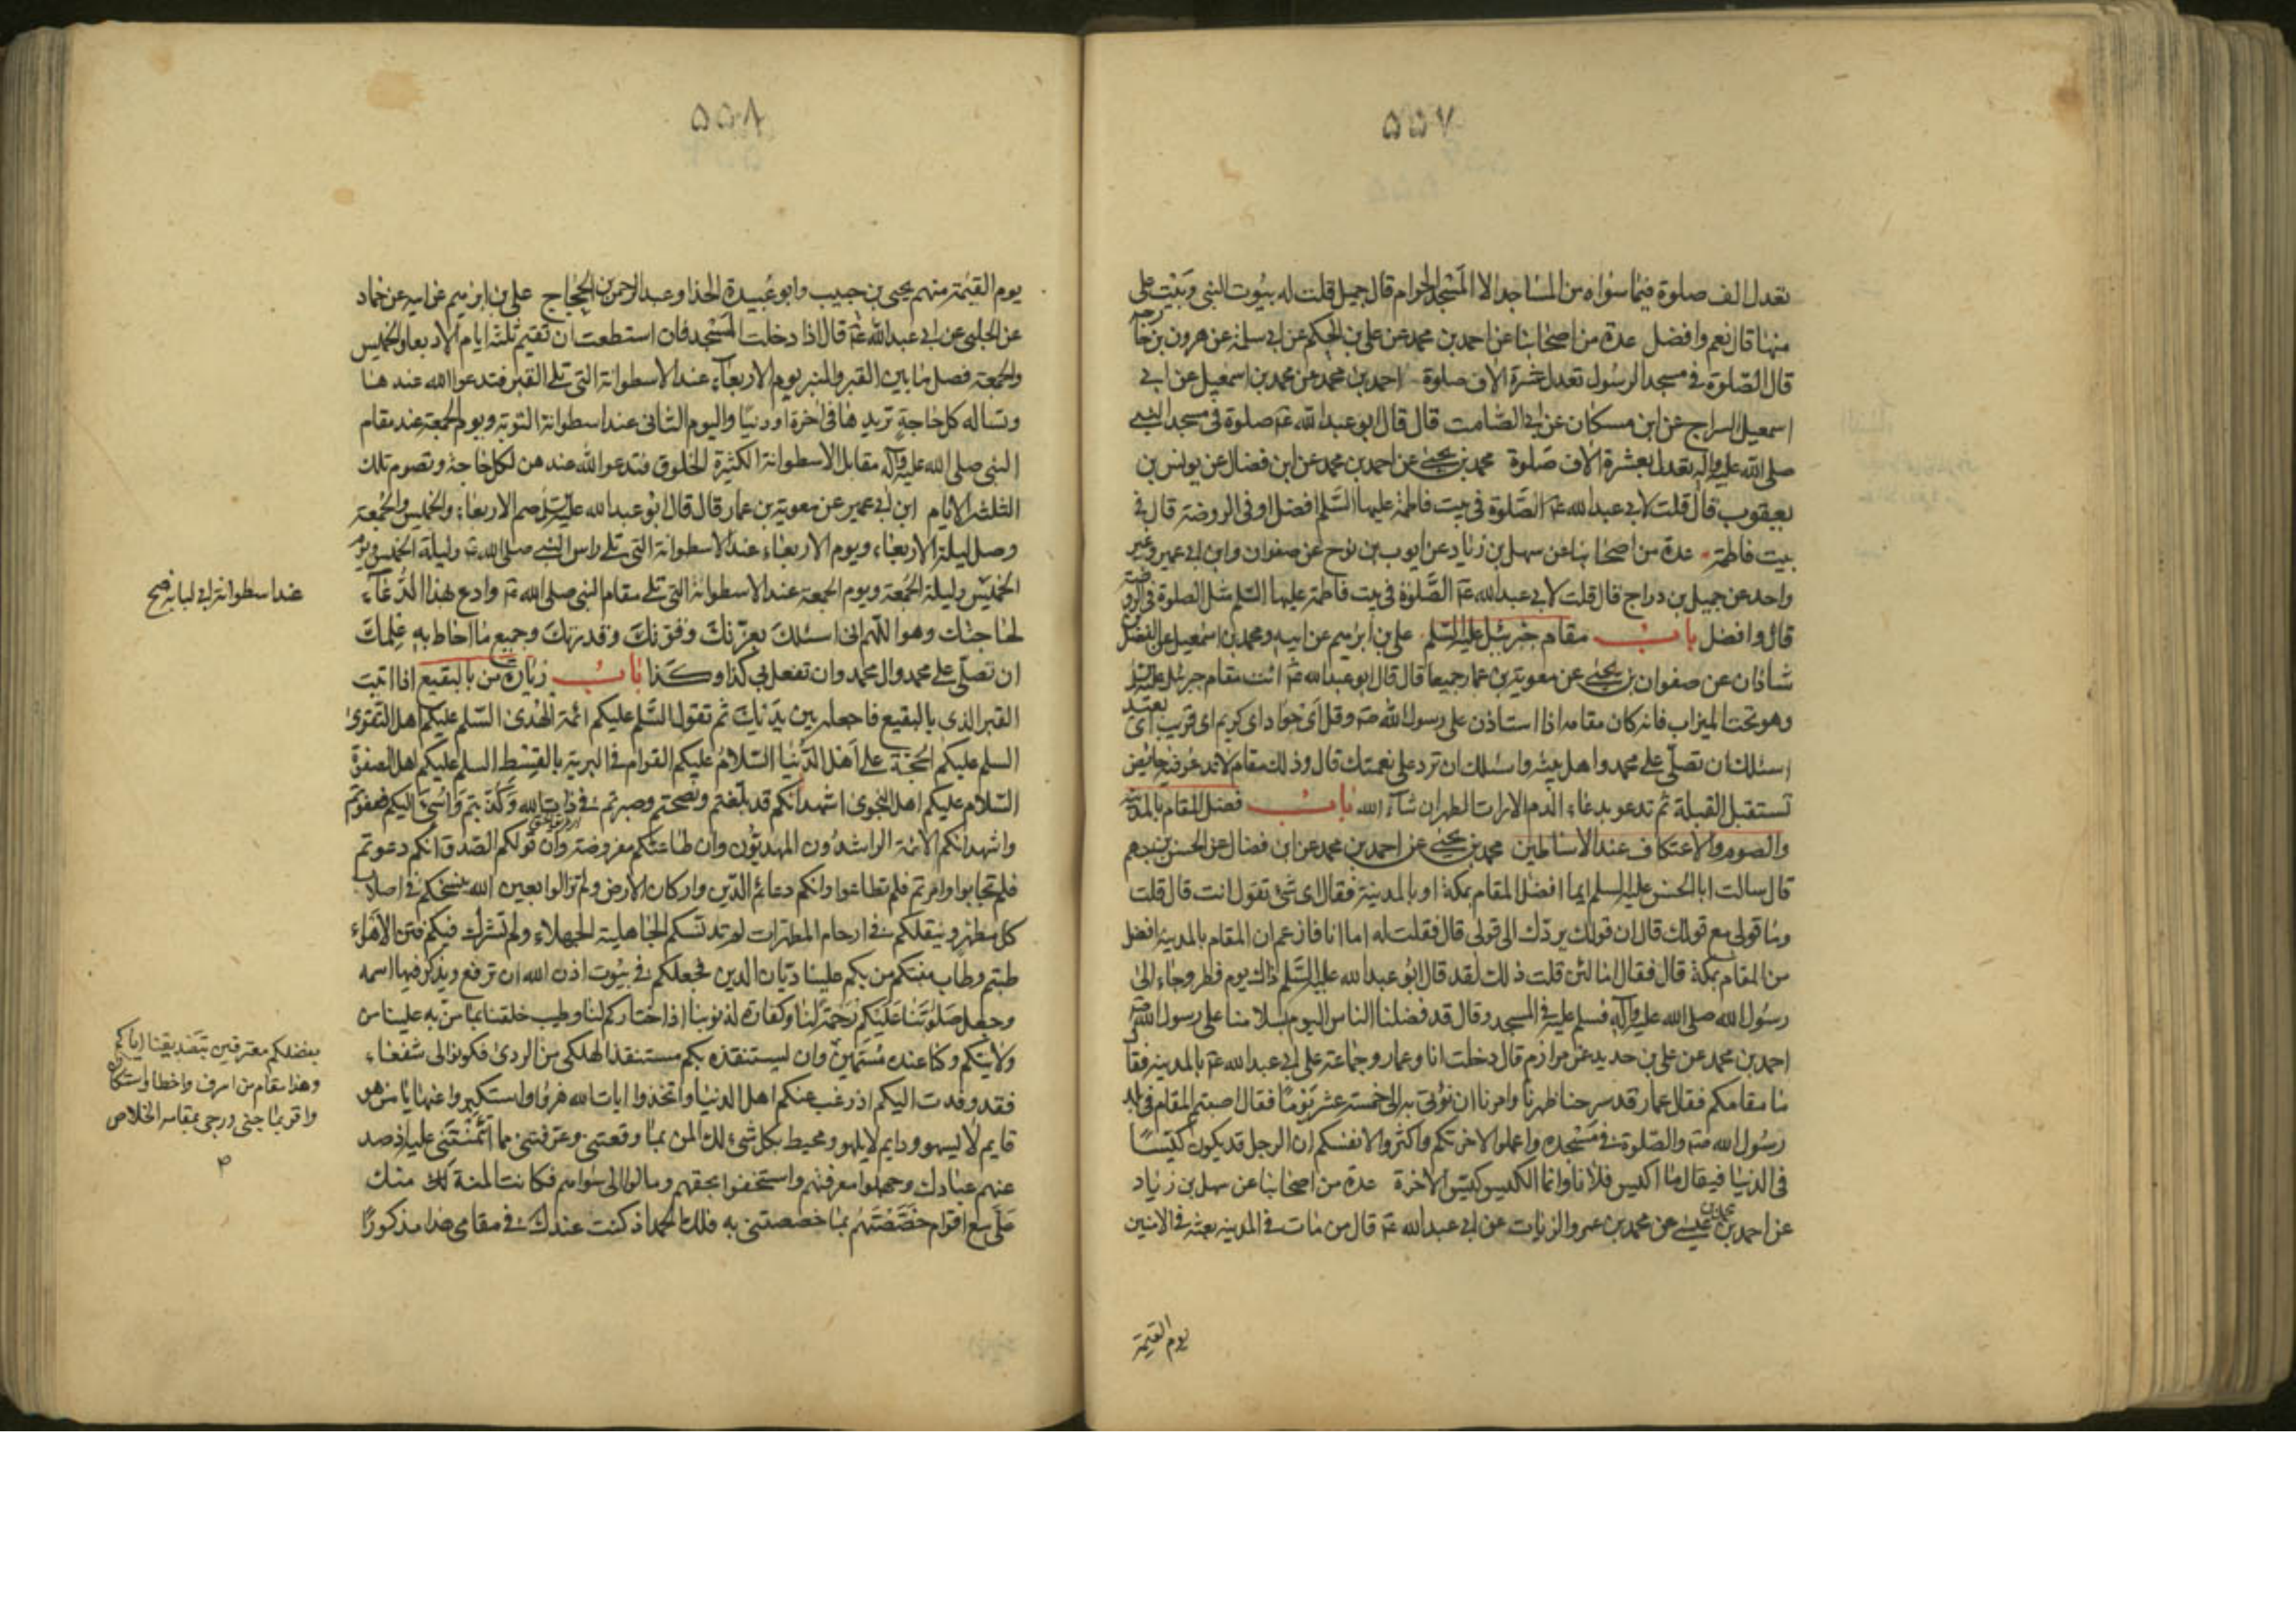 ۵۵۷
تعدل الف صلوة فيما سواه من المساجد الا المسجد الحرام قال جميل قلت له بيوت النبي وبيت علي
منها قال نعم وافضل عدة من اصحابنا عن احمد بن محمد عن علي بن الحكم عن ابي سلمة عن هرون بن خارجه
قال الصلوة في مسجد الرسول تعدل عشرة الاف صلوة احمد بن محمد عن محمد بن اسمعيل عن ابي
اسمعيل السراج عن ابن مسكان عن ابي الصامت قال قال ابو عبد الله عم صلوة في مسجد النبي
صلى الله عليه واله تعدل بعشرة الاف صلوة محمد بن يحيى عن احمد بن محمد عن ابن فضال عن يونس بن
يعقوب قال قلت لابي عبد الله عم الصلوة في بيت فاطمة عليها السلم افضل او في الروضة قال في
بيت فاطمة عدة من اصحابنا عن سهل بن زياد عن ايوب بن نوح عن صفوان وابن ابي عمير وغير
واحد عن جميل بن دراج قال قلت لابي عبد الله عم الصلوة في بيت فاطمة عليها السلم مثل الصلوة في الروضة
قال وافضل باب مقام جبرئيل عليه السلم علي بن ابرهيم عن ابيه ومحمد بن اسمعيل عن الفضل بن
شاذان عن صفوان بن يحيى عن معوية بن عمار جميعا قال قال ابو عبد الله عم ائت مقام جبرئيل عليه السلم
وهو تحت الميزاب فانه كان مقامه اذا استاذن على رسول الله ص وقل اي جواد اي كريم اي قريب اي بعيد
اسئلك ان تصلي على محمد واهل بيته واسئلك ان ترد علي نعمتك قال وذلك مقام لا تدعو فيه حايض
تستقبل القبلة ثم تدعو بدعاء الدم الا رات الطهر ان شاء الله باب فضل المقام بالمدينة
والصوم والاعتكاف عند الاساطين محمد بن يحيى عن احمد بن محمد عن ابن فضال عن الحسن بن جهم
قال سالت ابا الحسن عليه السلم ايما افضل المقام بمكة او بالمدينة فقال اي شئ تقول انت قال قلت
وما قولي مع قولك قال ان قولك يردك الى قولي قال فقلت له اما انا فازعم ان المقام بالمدينة افضل
من المقام بمكة قال فقال اما لئن قلت ذلك لقد قال ابو عبد الله عليه السلم ذاك يوم فطر وجاء الى
رسول الله صلى الله عليه واله فسلم عليه في المسجد وقال قد فضلنا الناس اليوم بسلامنا على رسول الله ص
احمد بن محمد عن علي بن حديد عن مرازم قال دخلت انا وعمار وجماعة على ابي عبد الله عم بالمدينة فقال
ما مقامكم فقال عمار قد سرحنا ظهرنا وامرنا ان نؤتى به الى خمسة عشر يوما فقال اصبتم المقام في بلد
رسول الله ص والصلوة في مسجده واعملوا لاخرتكم واكثروا لانفسكم ان الرجل قد يكون كيسا
في الدنيا فيقال ما اكيس فلانا وانما الكيس كيس الاخرة عدة من اصحابنا عن سهل بن زياد
عن احمد بن محمد بن عيسى عن محمد بن عمرو الزيات عن ابي عبد الله عم قال من مات في المدينة بعثه في الامنين
يوم القيمة
۵۵۸
يوم القيمة منهم يحيى بن حبيب وابو عبيدة الحذا وعبد الرحمن بن الحجاج علي بن ابرهيم عن ابيه عن حماد
عن الحلبي عن ابي عبد الله عم قال اذا دخلت المسجد فان استطعت ان تقيم ثلثة ايام الاربعا والخميس
والجمعة فصل ما بين القبر والمنبر يوم الاربعاء عند الاسطوانة التي تلي القبر فتدعو الله عندها
وتساله كل حاجة تريدها في اخرة او دنيا واليوم الثاني عند اسطوانة التوبة ويوم الجمعة عند مقام
النبي صلى الله عليه واله مقابل الاسطوانة الكثيرة الخلوق فتدعو الله عندهن لكل حاجة وتصوم تلك
الثلثة الايام ابن ابي عمير عن معوية بن عمار قال قال ابو عبد الله عليه السلم صم الاربعاء والخميس والجمعة
وصل ليلة الاربعاء ويوم الاربعاء عند الاسطوانة التي تلي راس النبي صلى الله عم وليلة الخميس ويوم
الخميس وليلة الجمعة ويوم الجمعة عند الاسطوانة التي تلي مقام النبي صلى الله عم وادع بهذا الدعاء
عند اسطوانة ابي لبابة صح
لحاجتك وهو اللهم اني اسئلك بعزتك وقوتك وقدرتك وجميع ما احاط به علمك
ان تصلي على محمد وال محمد وان تفعل بي كذا وكذا باب زيارة من بالبقيع اذا اتيت
القبر الذي بالبقيع فاجعله بين يديك ثم تقول السلم عليكم ائمة الهدى السلم عليكم اهل التقوى
السلم عليكم الحجة على اهل الدنيا السلام عليكم القوام في البرية بالقسط السلم عليكم اهل الصفوة
السلام عليكم اهل النجوى اشهد انكم قد بلغتم ونصحتم وصبرتم في ذات الله وكذبتم واسئ اليكم فعفوتم
واشهد انكم الائمة الراشدون المهديون وان طاعتكم مفروضة وان قولكم الصدق انكم دعوتم
فلم تجابوا وامرتم فلم تطاعوا وانكم دعائم الدين واركان الارض ولم تزالوا بعين الله ينسخكم في اصلاب
كل مطهر وينقلكم في ارحام المطهرات لم تدنسكم الجاهلية الجهلاء ولم تشرك فيكم فتن الاهواء
طبتم وطاب منبتكم من بكم علينا ديان الدين فجعلكم في بيوت اذن الله ان ترفع ويذكر فيها اسمه
وجعل صلوتنا عليكم رحمة لنا وكفارة لذنوبنا اذ اختاركم لنا وطيب خلقنا بما من به علينا من
ولايتكم وكنا عنده مسمين وان يستنقذه بكم مستنقذ الهلكى من الردى فكونوا لي شفعاء
بفضلكم معترفين بتصديقنا اياكم
وهذا مقام من اسرف واخطا واستكان
واقر بما جنى ورجى بمقامه الخلاص
فقد وفدت اليكم اذ رغب عنكم اهل الدنيا واتخذوا ايات الله هزوا واستكبروا عنها يا من هو
قايم لا يسهو ودايم لا يلهو ومحيط بكل شئ لك المن بما وقعتني وعرفتني مما ائتمنتني عليه اذ صد
عنهم عبادك وجهلوا معرفتهم واستخفوا بحقهم ومالوا الى سواهم فكانت المنة لك منك
علي مع اقوام خصصتهم بما خصصتني به فلك الحمد اذ كنت عندك في مقامي هذا مذكورا